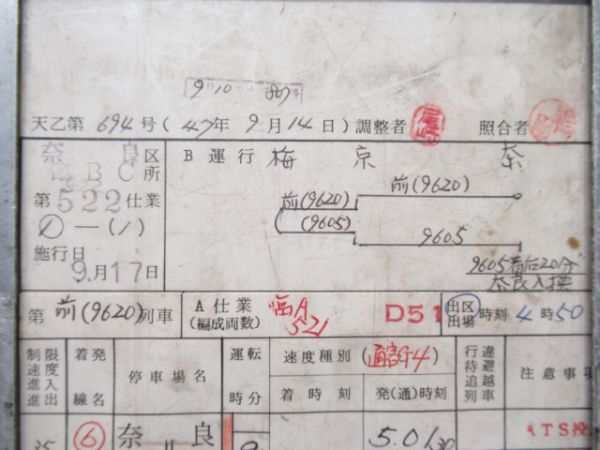 9 10
天乙第 694 号 (47年 9月 14日) 調整者 照合者
奈良区
臨BC所
第522仕業
①—(1)
施行日
9月17日
B 運行 梅 京 奈
前(9620) 前(9620)
(9605)
9605
9605着后20分
奈良入換
第 前(9620)列車
A 仕業
(編成両数)
臨A
521
D51
出区
出場
時刻 4時50
制限速度
進入進出
着発線名
停車場名
運転時分
速度種別 (通客G4)
着時刻 発(通)時刻
行違
待避
追越
列車
注意事項
35 ⑥ 奈良 5.01 30 ATS投